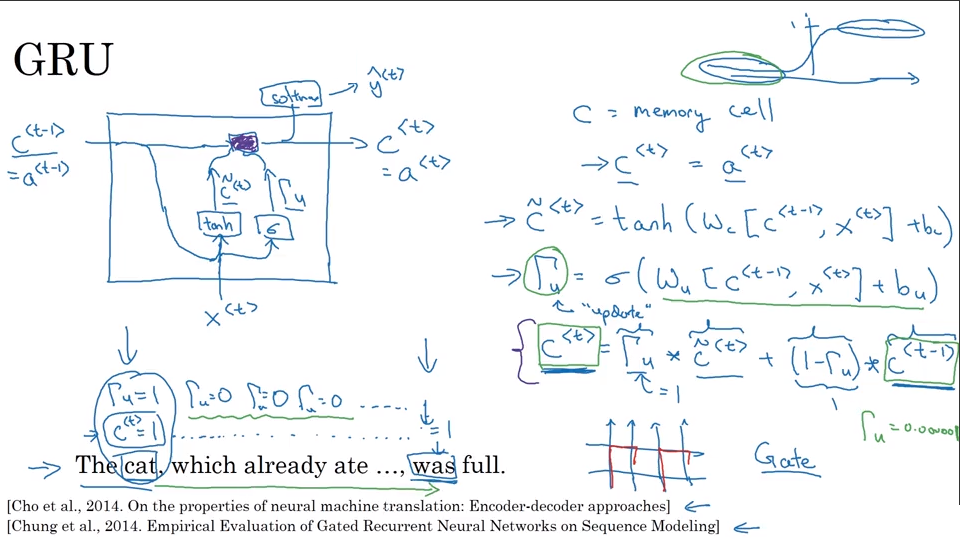 GRU
softmax → ŷ^<t>
c^<t-1>
= a^<t-1>
c^<t>
= a^<t>
c̃^<t>
Γu
tanh
σ
x^<t>
1
C = memory cell
→ c^<t> = a^<t>
→ c̃^<t> = tanh (Wc [c^<t-1>, x^<t>] + bc)
→ Γu = σ (Wu [c^<t-1>, x^<t>] + bu)
"update"
c^<t> = Γu * c̃^<t> + (1-Γu) * c^<t-1>
= 1
1
Γu = 0.000001
Gate
Γu=1 Γu=0 Γu=0 Γu=0 .....
c^<t>=1 ............ =1
→ The cat, which already ate …, was full.
[Cho et al., 2014. On the properties of neural machine translation: Encoder-decoder approaches] ←
[Chung et al., 2014. Empirical Evaluation of Gated Recurrent Neural Networks on Sequence Modeling] ←